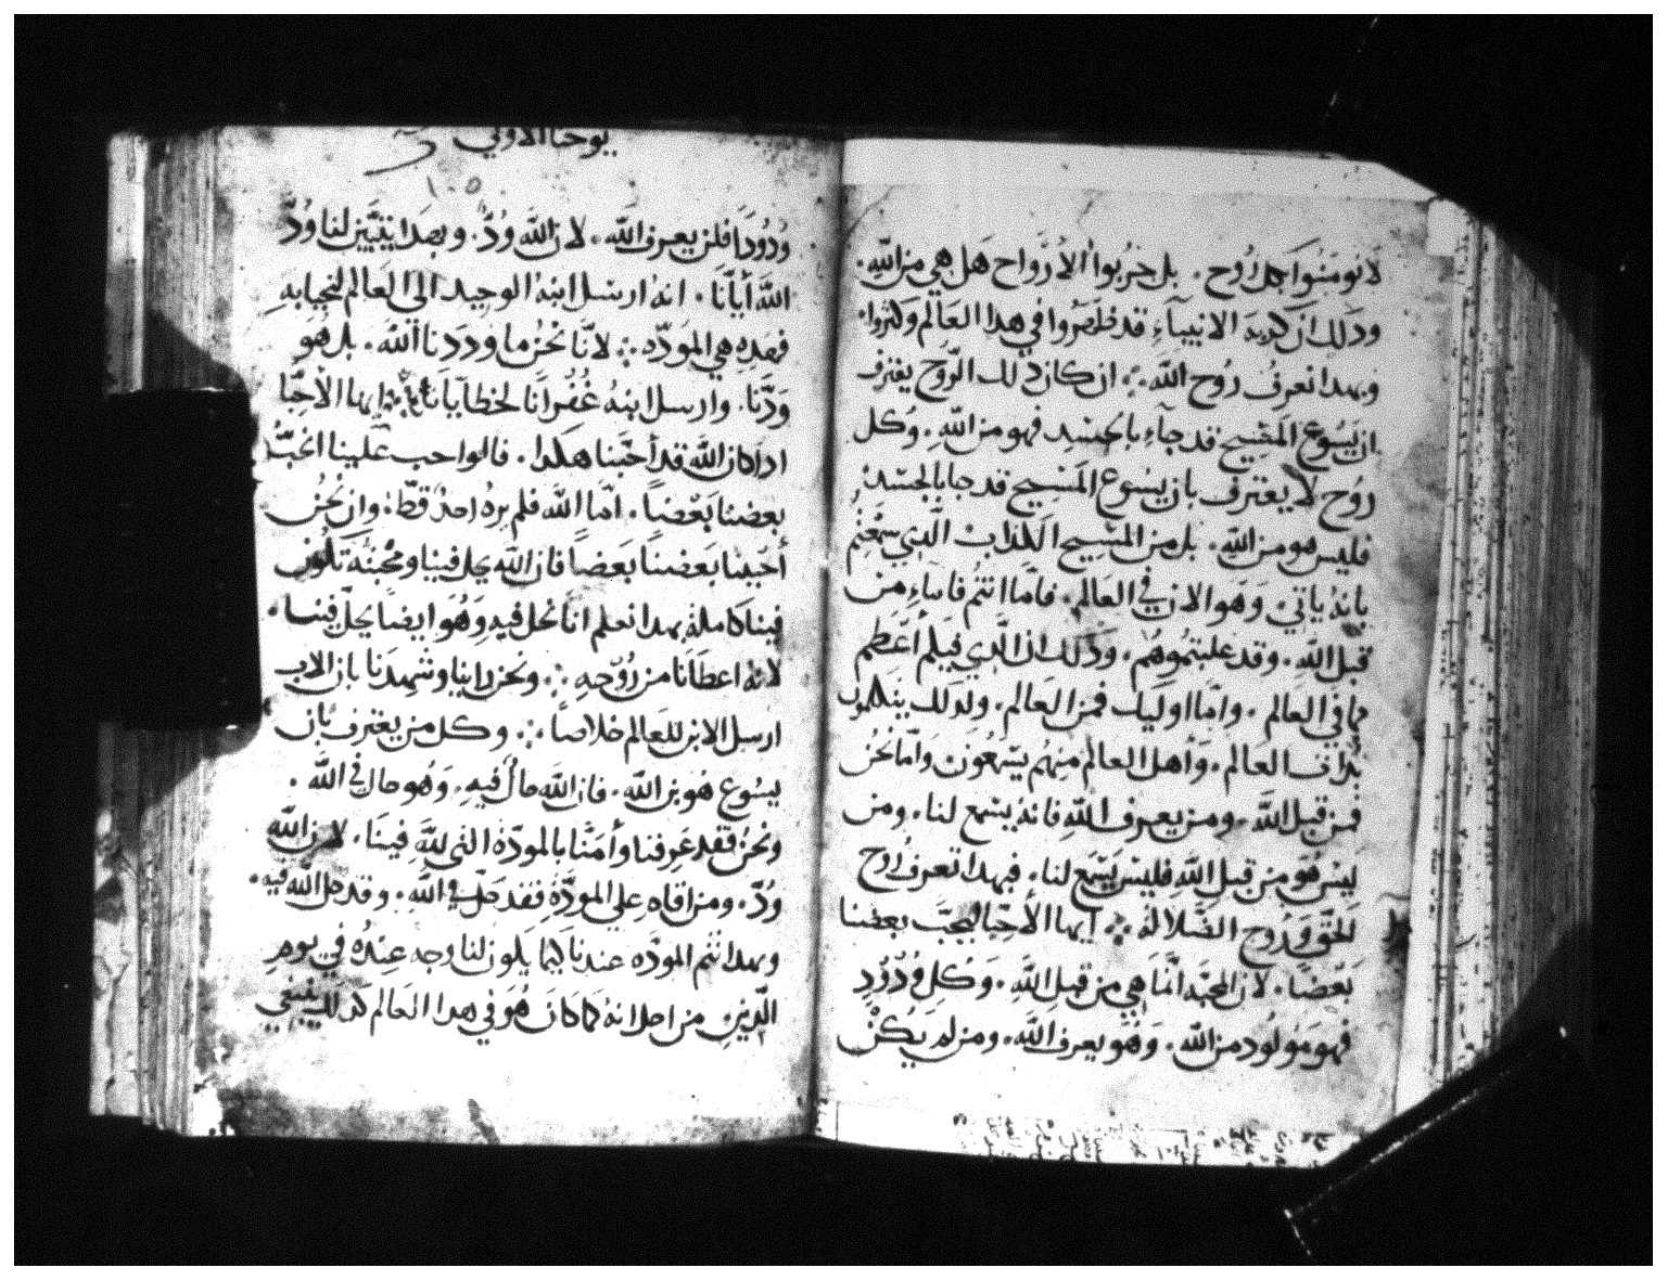 لا تومنوا بكل روح . بل جربوا الأرواح هَل هي من اللّهِ .
ودلك ان كدبة الانبيآءِ قد ظهرُوا في هدا العَالم وكثروا .
وبهدا نعرفُ رُوح اللّه ∴ ان كان دلك الرّوح يعترف
ان يَسُوع المَسِيح قد جآءِ بالجسَدِ فهو من اللّهِ . وكل
رُوح لا يعترف بان يسُوع المَسِيح قد جا بالجسَد
فليس هو من اللّهِ . بل من المسِيح الكداب الّدِي سَمعتُم
بانهُ ياتي . وَهَو الان في العَالم . فامّا انتم فابناءِ من
قبل اللّهِ . وقد غلبتمُوهُم . وَدَلك ان الّدِي فيكم أعَظم
مما في العَالم . وامّا اوليك فمن العَالم . ولدلك يتكلمون
بدات العَالم . وَأهل العَالم منهُم يسَمعُون وَامّا نحنُ
فمن قبل اللّه . ومن يعرف اللّهِ فانهُ يسَمع لنا . ومن
ليسَ هُو من قبل اللّهِ فليسَ يَسَمَع لنا . فبهدا تعرفُ روح
الحَق وَرُوح الضّلالة ∴ ايها الأحبّا ليحِبَّ بعضنا
بَعضاً . لان المحبّه انّمَا هِي من قبل اللّهِ . وَكُل وَدُودٍ
فهو مَولُود من اللّه . وَهُو يعرف اللّه . ومن لم يَكُنْ
يوحنا الاولي
١٠٥
وُدُودَاً فلن يعرف اللّه . لان اللّه وُدٌّ . وبهَدا يتبيَّن لنا وُدُّ
اللّه أيأنا . انهُ ارسَل ابنهُ الوحِيد الى العَالم لنحيا بهِ
فهَدِهِ هي المَودّه ∴ لانّا نحنُ ما ودَدنا اللّه . بل هُو
وَدّنا . وارسل ابنهُ غُفرانًا لخطايانا ∴ ايها الأحبّا
ادا كان اللّه قد أحبّنا هكدا . فالواجب علينا ان نحبَّ
بعضنا بَعْضاً . امّا اللّه فلم يرهُ احدٌ قطّ . وان نحنُ
أحبَبنا بَعضنا بَعضاً فان اللّه يحل فينا ومحبته تكون
فينا كامله بهدا نعلم انا نحل فيهِ وَهُوَ ايضاً يحلّ فينا .
لانه اعطانا من رُوحِهِ ∴ ونحن راينا وشهدنا بان الاب
ارسل الابن للعَالم خلاصاً ∴ وكل من يعترف بان
يسُوع هُو بن اللّه . فان اللّه حالٌ فيهِ . وَهُو حال في اللّه .
ونحنُ فقد عَرفنا وأمنّا بالمودّة التي للهِ فِينَا . لان اللّه
وُدٌّ . ومن اقام علي المودّةِ فقد حَلّ في اللّهِ . وقد حل اللّه فيهِ .
وبهدا تتم المودّه عندنا كيما يَكون لنا وجه عِندُه في يومِ
الّدين من اجل انهُ كما كانَ هُوَ في هدا العَالم كدلك ينبغي